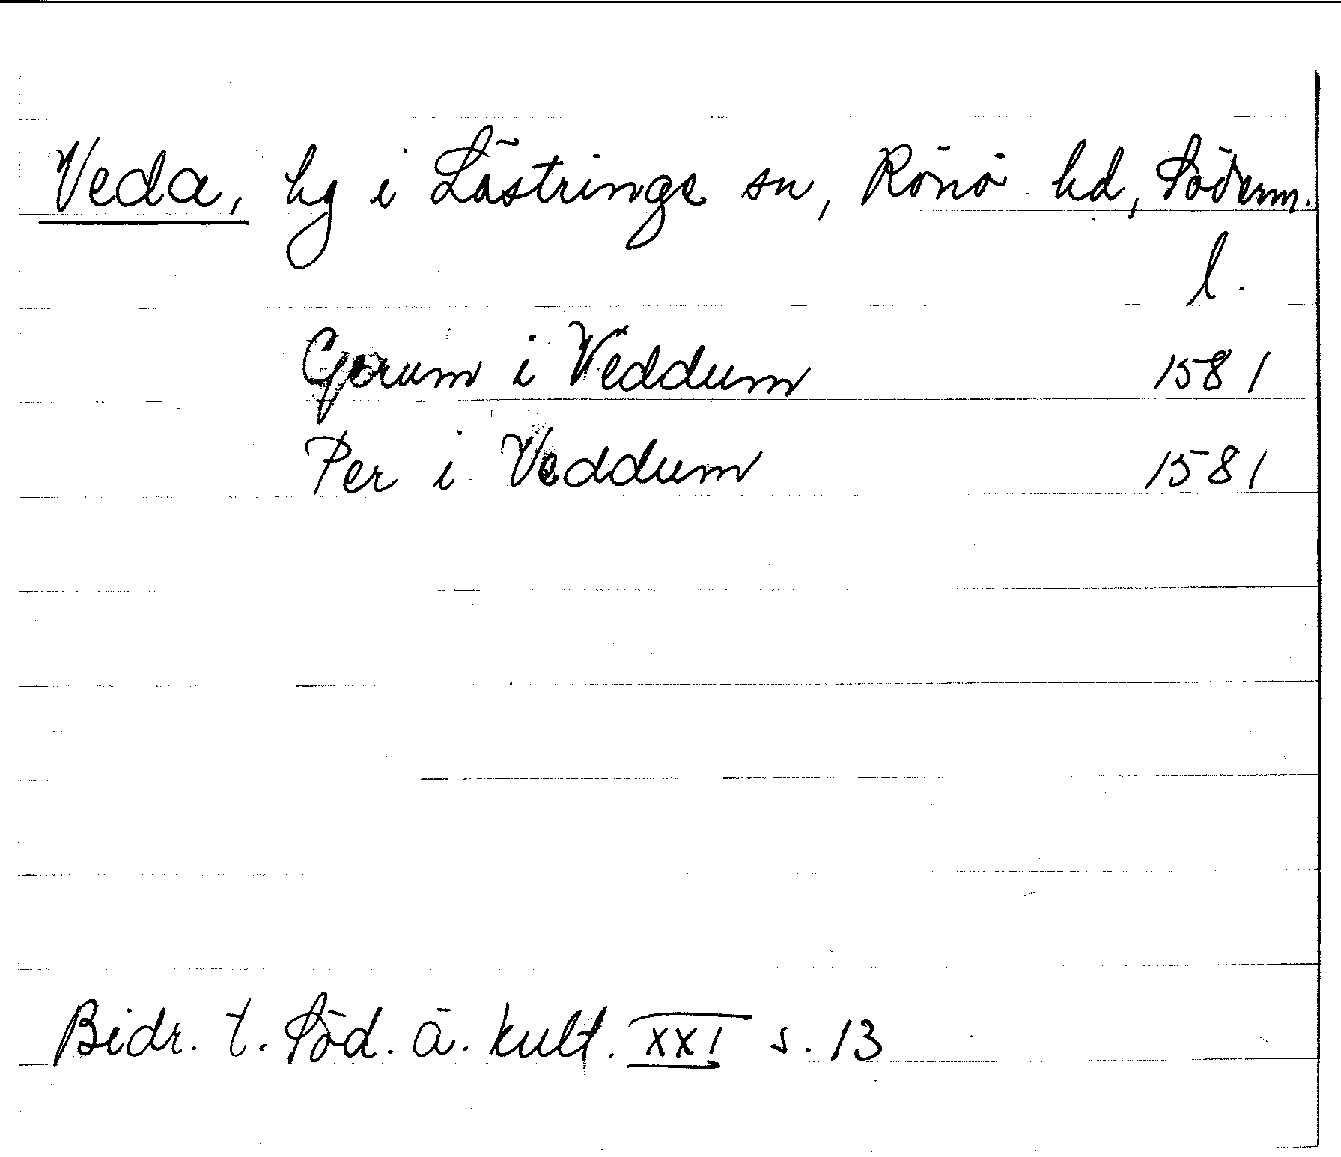 Veda, hg i Lästringe sn, Rönö hd, Söderm.
l.
Gorum i Veddum 1581
Per i Veddum 1581
Bidr. t. Söd. ä. kult. XXI s. 13